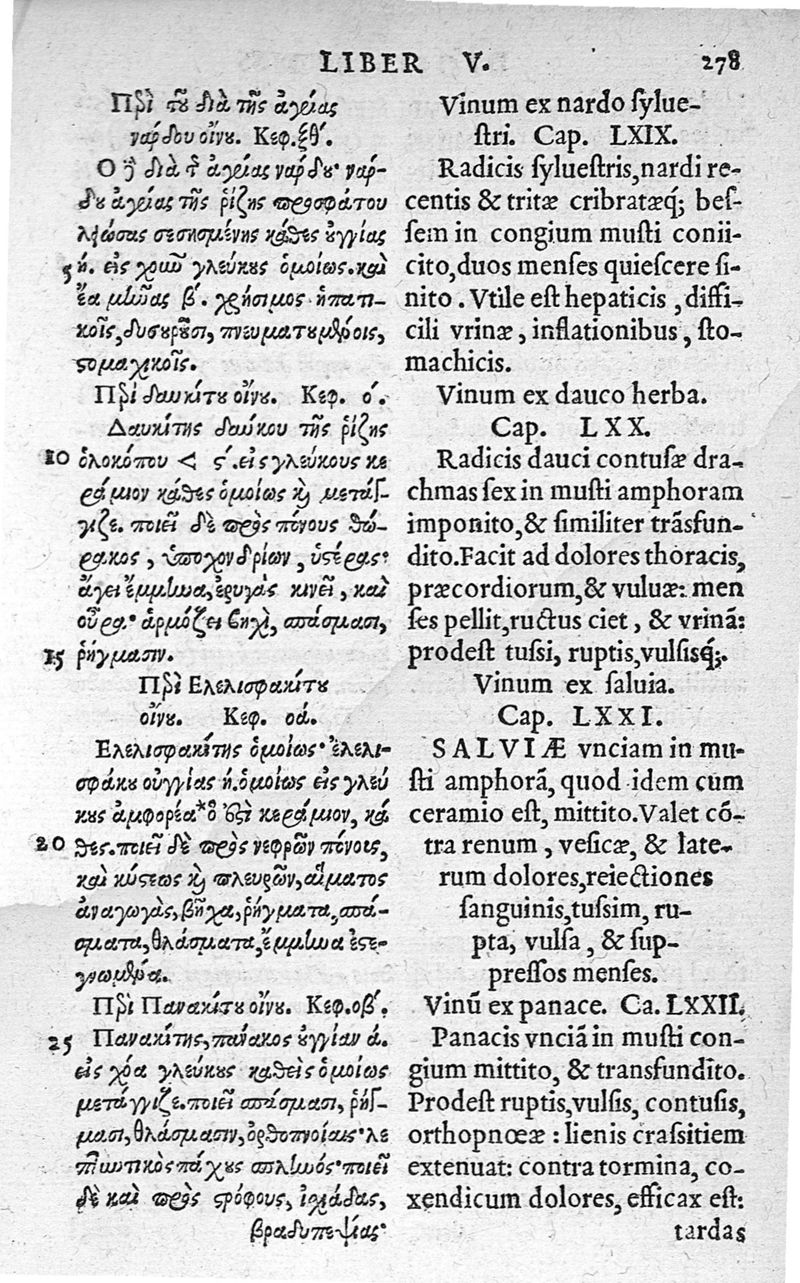 LIBER V. 278
Περὶ τοῦ διὰ τῆς ἀγρίας
νάρδου οἴνου. Κεφ. ξθʹ.
Ὁ δὲ διὰ τῆς ἀγρίας νάρδου· νάρ-
δου ἀγρίας τῆς ῥίζης προσφάτου
λειώσας σεσησμένης κάθες οὐγγίας
5 ή. εἰς χοῦν γλεύκους ὁμοίως. καὶ
ἔα μῆνας β΄. χρήσιμος ἡπατι-
κοῖς, δυσουροῦσι, πνευματουμένοις,
στομαχικοῖς.
Περὶ δαυκίτου οἴνου. Κεφ. ό.
Δαυκίτης δαύκου τῆς ῥίζης
10 ὁλοκόπου < ϛ΄. εἰς γλεύκους κε
ράμιον κάθες ὁμοίως καὶ μετάγ-
γιζε. ποιεῖ δὲ πρὸς πόνους θώ-
ρακος, ὑποχονδρίων, ὑστέρας·
ἄγει ἔμμηνα, ἐρυγὰς κινεῖ, καὶ
οὖρα· ἁρμόζει βηχὶ, σπάσμασι,
15 ῥήγμασιν.
Περὶ Ελελισφακίτου
οἴνου. Κεφ. οά.
Ελελισφακίτης ὁμοίως· ἐλελι-
σφάκου οὐγγίας ή. ὁμοίως εἰς γλεύ
κους ἀμφορέα* ὅ ἐστι κεράμιον, κά
20 θες. ποιεῖ δὲ πρὸς νεφρῶν πόνοις,
καὶ κύστεως καὶ πλευρῶν, αἵματος
ἀναγωγὰς, βῆχα, ῥήγματα, σπά-
σματα, θλάσματα, ἔμμηνα ἐστε-
γνωμένα.
Περὶ Πανακίτου οἴνου. Κεφ. οβ΄.
25 Πανακίτης, πάνακος οὐγγίαν ά.
εἰς χόα γλεύκους καθεὶς ὁμοίως
μετάγγιζε. ποιεῖ σπάσμασι, ῥήγ-
μασι, θλάσμασιν, ὀρθοπνοίαις· λε
πτωτικὸς πάχους σπληνός· ποιεῖ
δὲ καὶ πρὸς στρόφους, ἰσχιάδας,
βραδυπεψίας·
Vinum ex nardo sylue-
stri. Cap. LXIX.
Radicis syluestris, nardi re-
centis & tritæ cribratæq́; bes-
sem in congium musti conii-
cito, duos menses quiescere si-
nito. Vtile est hepaticis, diffi-
cili vrinæ, inflationibus, sto-
machicis.
Vinum ex dauco herba.
Cap. LXX.
Radicis dauci contusæ dra-
chmas sex in musti amphoram
imponito, & similiter trãsfun-
dito. Facit ad dolores thoracis,
præcordiorum, & vuluæ: men
ses pellit, ructus ciet, & vrinã:
prodest tussi, ruptis, vulsisq́;.
Vinum ex saluia.
Cap. LXXI.
SALVIÆ vnciam in mu-
sti amphorã, quod idem cum
ceramio est, mittito. Valet cõ-
tra renum, vesicæ, & late-
rum dolores, reiectiones
sanguinis, tussim, ru-
pta, vulsa, & sup-
pressos menses.
Vinũ ex panace. Ca. LXXII.
Panacis vnciã in musti con-
gium mittito, & transfundito.
Prodest ruptis, vulsis, contusis,
orthopnœæ: lienis crassitiem
extenuat: contra tormina, co-
xendicum dolores, efficax est:
tardas